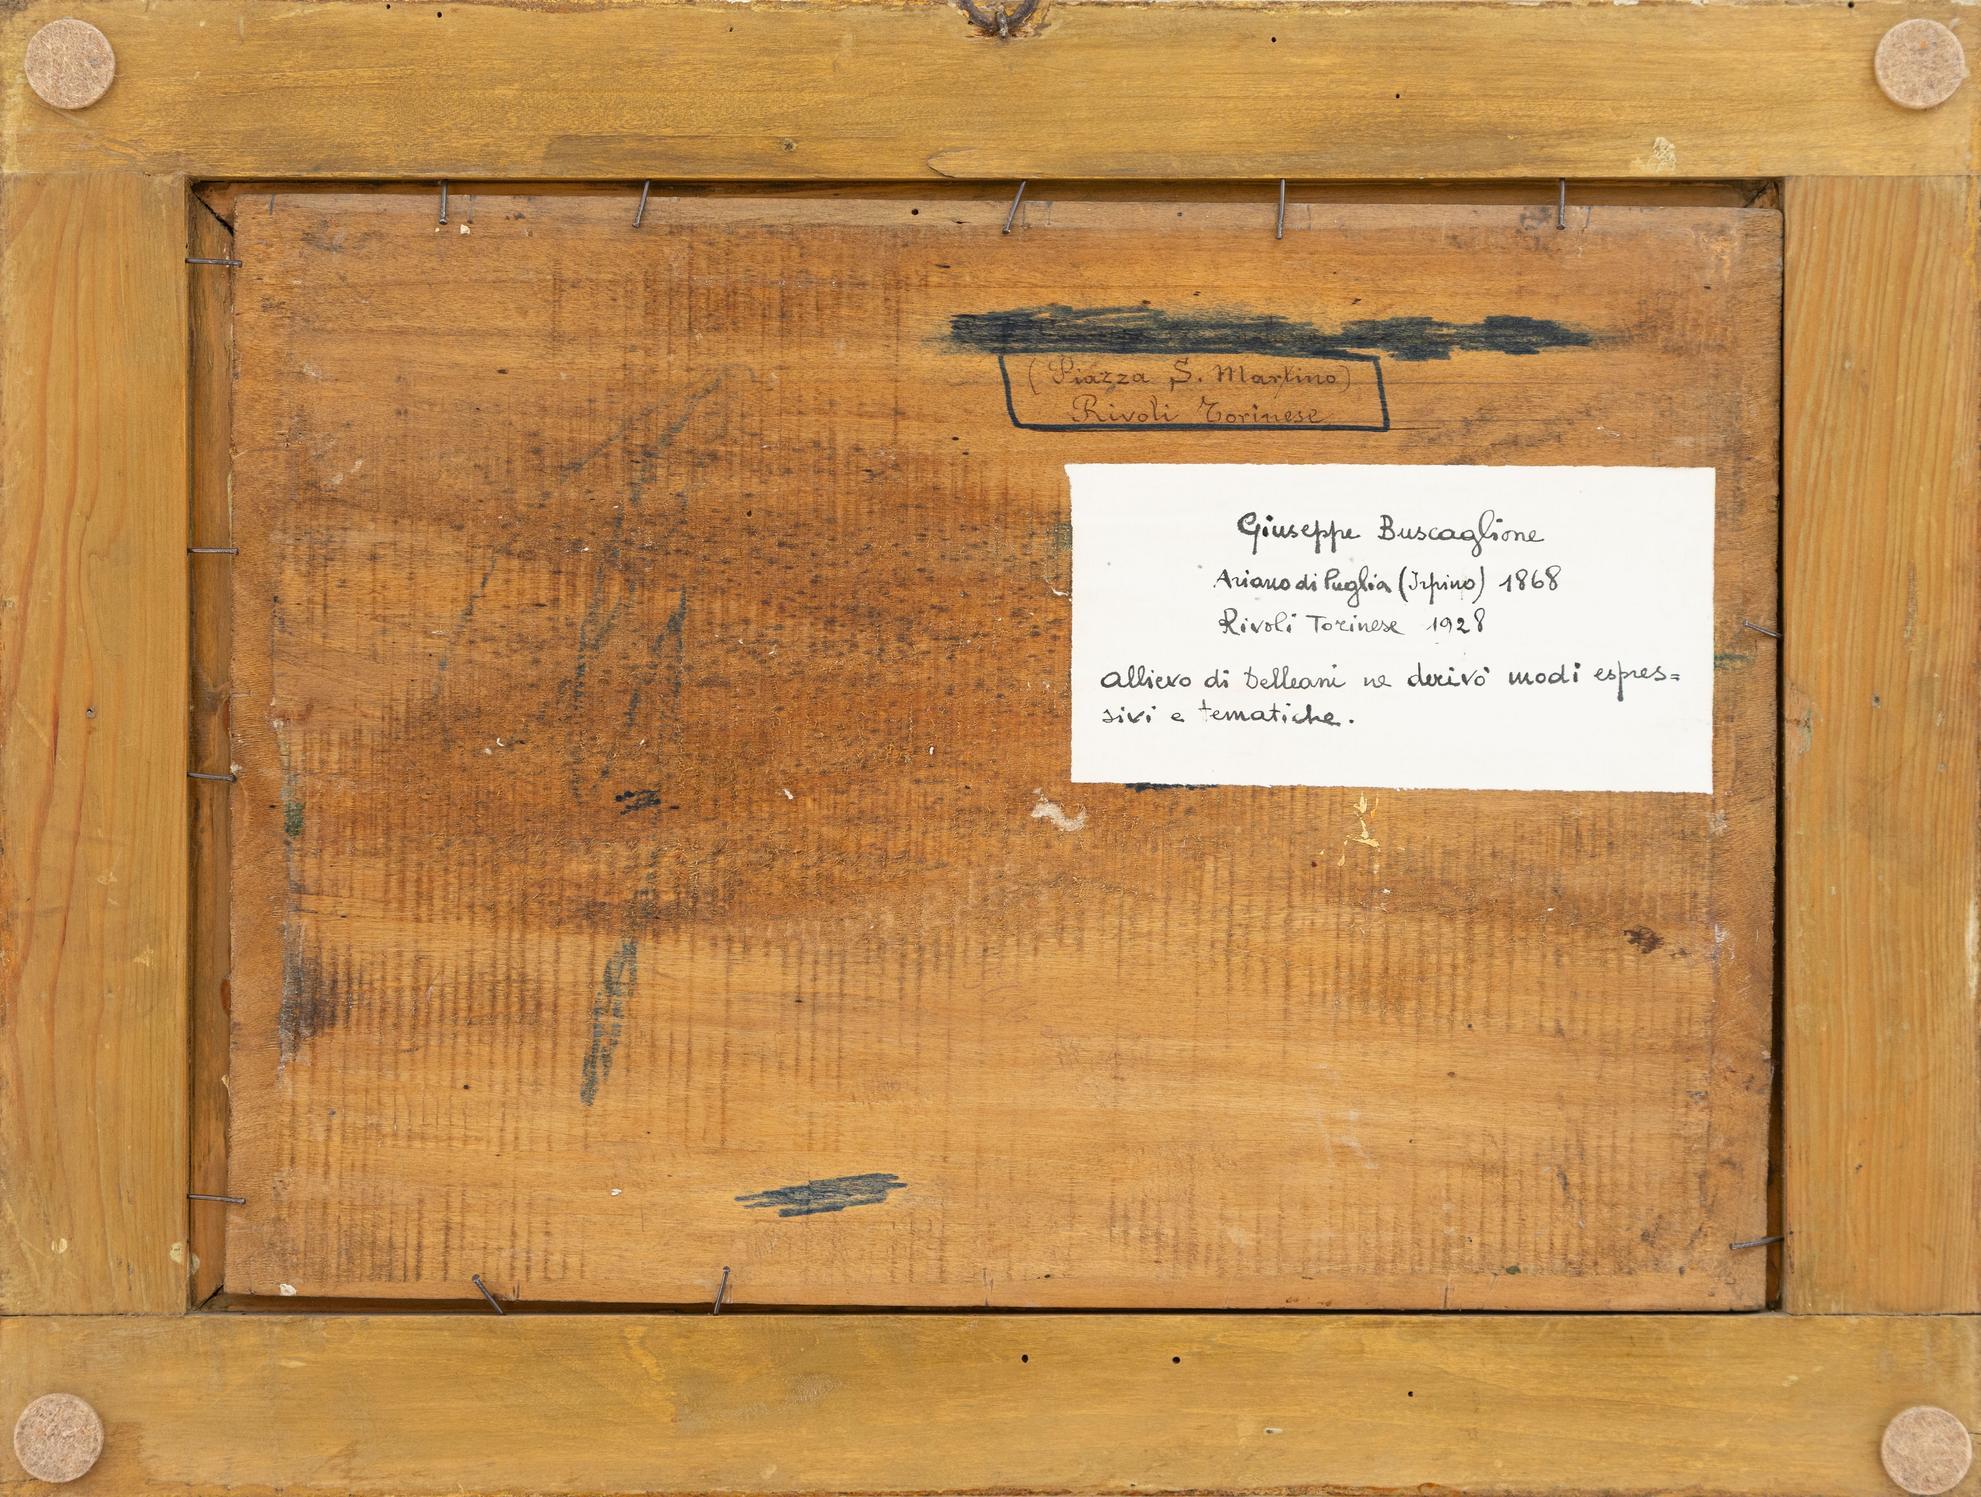 (Piazza S. Martino)
Rivoli Torinese
Giuseppe Buscaglione
Ariano di Puglia (Irpino) 1868
Rivoli Torinese 1928
allievo di Delleani ne derivò modi espres=
sivi e tematiche.